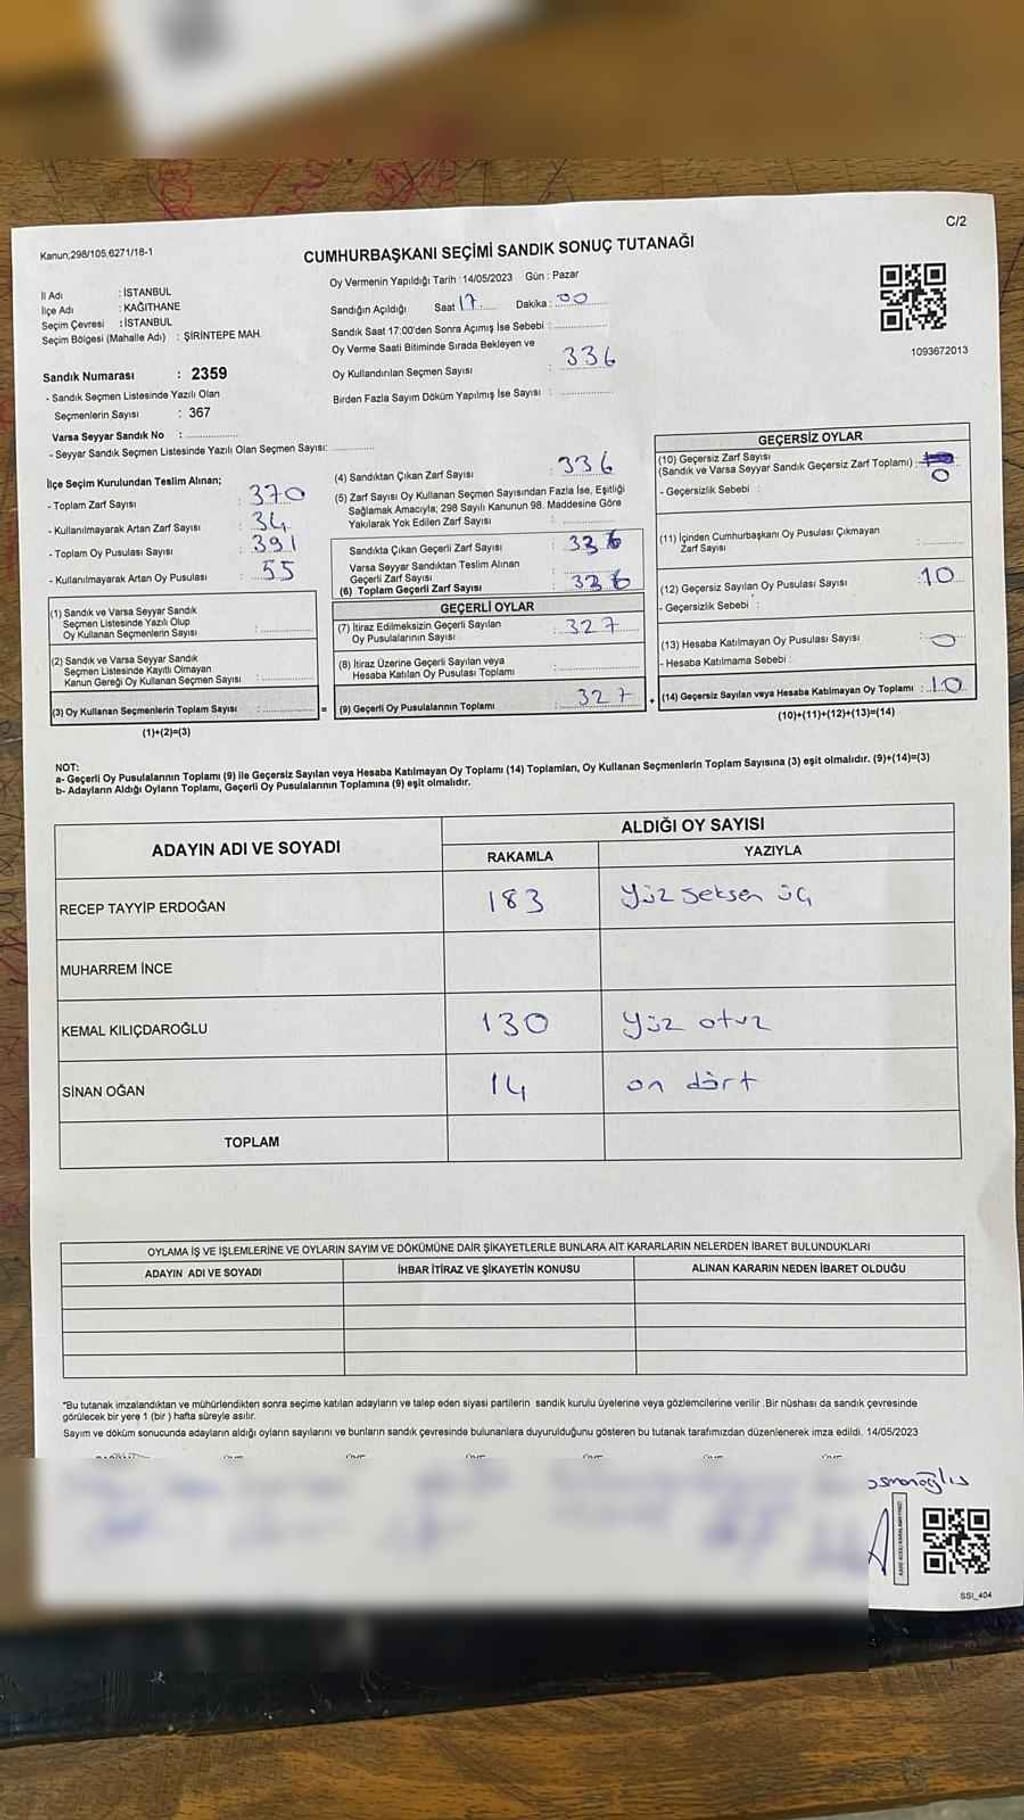 C/2
Kanun;298/105,6271/18-1
CUMHURBAŞKANI SEÇİMİ SANDIK SONUÇ TUTANAĞI
İl Adı : İSTANBUL
İlçe Adı : KAĞITHANE
Seçim Çevresi : İSTANBUL
Seçim Bölgesi (Mahalle Adı) : ŞİRİNTEPE MAH.
Sandık Numarası : 2359
- Sandık Seçmen Listesinde Yazılı Olan
Seçmenlerin Sayısı : 367
Varsa Seyyar Sandık No :
- Seyyar Sandık Seçmen Listesinde Yazılı Olan Seçmen Sayısı:
Oy Vermenin Yapıldığı Tarih : 14/05/2023 Gün : Pazar
Sandığın Açıldığı Saat 17 Dakika : 00
Sandık Saat 17:00'den Sonra Açımış İse Sebebi :
Oy Verme Saati Bitiminde Sırada Bekleyen ve
Oy Kullandırılan Seçmen Sayısı : 336
Birden Fazla Sayım Döküm Yapılmış İse Sayısı :
1093672013
İlçe Seçim Kurulundan Teslim Alınan;
- Toplam Zarf Sayısı : 370
- Kullanılmayarak Artan Zarf Sayısı : 34
- Toplam Oy Pusulası Sayısı : 391
- Kullanılmayarak Artan Oy Pusulası : 55
(1) Sandık ve Varsa Seyyar Sandık
Seçmen Listesinde Yazılı Olup
Oy Kullanan Seçmenlerin Sayısı :
(2) Sandık ve Varsa Seyyar Sandık
Seçmen Listesinde Kayıtlı Olmayan
Kanun Gereği Oy Kullanan Seçmen Sayısı :
(3) Oy Kullanan Seçmenlerin Toplam Sayısı :
(1)+(2)=(3)
=
(4) Sandıktan Çıkan Zarf Sayısı : 336
(5) Zarf Sayısı Oy Kullanan Seçmen Sayısından Fazla İse, Eşitliği
Sağlamak Amacıyla; 298 Sayılı Kanunun 98. Maddesine Göre
Yakılarak Yok Edilen Zarf Sayısı :
Sandıkta Çıkan Geçerli Zarf Sayısı : 336
Varsa Seyyar Sandıktan Teslim Alınan
Geçerli Zarf Sayısı
(6) Toplam Geçerli Zarf Sayısı : 336
GEÇERLİ OYLAR
(7) İtiraz Edilmeksizin Geçerli Sayılan
Oy Pusulalarının Sayısı : 327
(8) İtiraz Üzerine Geçerli Sayılan veya
Hesaba Katılan Oy Pusulası Toplamı :
(9) Geçerli Oy Pusulalarının Toplamı : 327
+
GEÇERSİZ OYLAR
(10) Geçersiz Zarf Sayısı
(Sandık ve Varsa Seyyar Sandık Geçersiz Zarf Toplamı) : 0
- Geçersizlik Sebebi :
(11) İçinden Cumhurbaşkanı Oy Pusulası Çıkmayan
Zarf Sayısı :
(12) Geçersiz Sayılan Oy Pusulası Sayısı : 10
- Geçersizlik Sebebi :
(13) Hesaba Katılmayan Oy Pusulası Sayısı : 0
- Hesaba Katılmama Sebebi :
(14) Geçersiz Sayılan veya Hesaba Katılmayan Oy Toplamı : 10
(10)+(11)+(12)+(13)=(14)
NOT:
a- Geçerli Oy Pusulalarının Toplamı (9) ile Geçersiz Sayılan veya Hesaba Katılmayan Oy Toplamı (14) Toplamları, Oy Kullanan Seçmenlerin Toplam Sayısına (3) eşit olmalıdır. (9)+(14)=(3)
b- Adayların Aldığı Oyların Toplamı, Geçerli Oy Pusulalarının Toplamına (9) eşit olmalıdır.
ADAYIN ADI VE SOYADI
ALDIĞI OY SAYISI
RAKAMLA YAZIYLA
RECEP TAYYİP ERDOĞAN 183 Yüz seksen üç
MUHARREM İNCE
KEMAL KILIÇDAROĞLU 130 Yüz otuz
SİNAN OĞAN 14 on dört
TOPLAM
OYLAMA İŞ VE İŞLEMLERİNE VE OYLARIN SAYIM VE DÖKÜMÜNE DAİR ŞİKAYETLERLE BUNLARA AİT KARARLARIN NELERDEN İBARET BULUNDUKLARI
ADAYIN ADI VE SOYADI İHBAR İTİRAZ VE ŞİKAYETİN KONUSU ALINAN KARARIN NEDEN İBARET OLDUĞU
"Bu tutanak imzalandıktan ve mühürlendikten sonra seçime katılan adayların ve talep eden siyasi partilerin sandık kurulu üyelerine veya gözlemcilerine verilir .Bir nüshası da sandık çevresinde
görülecek bir yere 1 (bir ) hafta süreyle asılır.
Sayım ve döküm sonucunda adayların aldığı oyların sayılarını ve bunların sandık çevresinde bulunanlara duyurulduğunu gösteren bu tutanak tarafımızdan düzenlenerek imza edildi. 14/05/2023
SSI_404